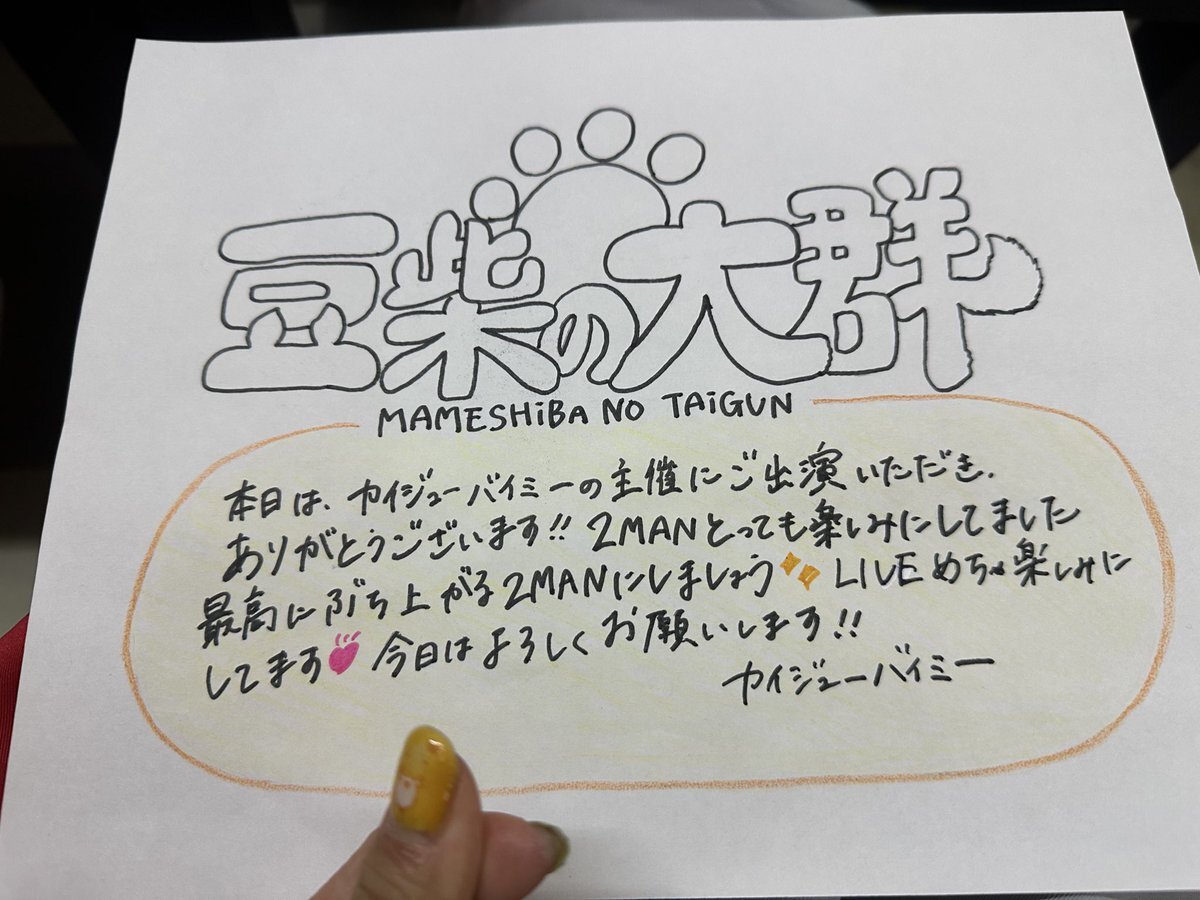 豆柴の大群
MAMESHiBA NO TAiGUN
本日は、カイジューバイミーの主催にご出演いただき、
ありがとうございます!! 2MANとっても楽しみにしてました
最高にぶち上がる2MANにしましょう LIVEめちゃ楽しみに
してます 今日はよろしくお願いします!!
カイジューバイミー